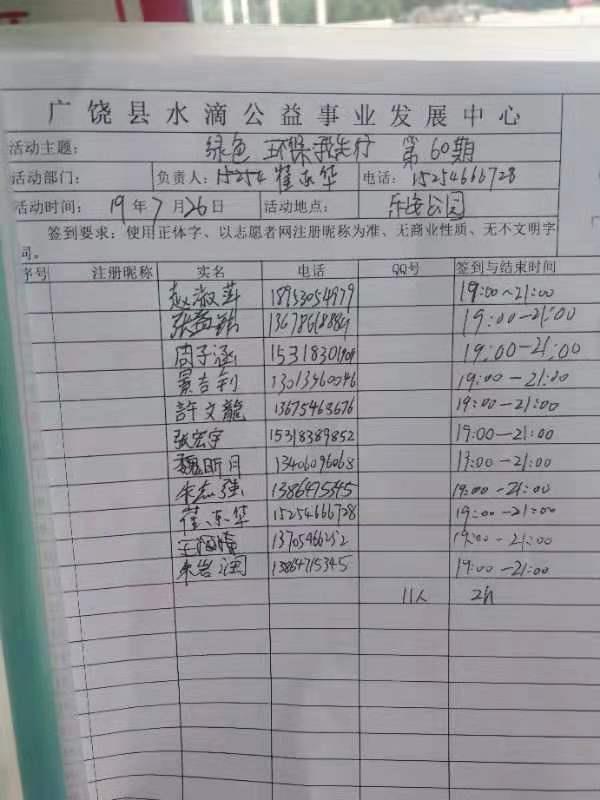 广饶县水滴公益事业发展中心
活动主题: 绿色环保我先行 第60期
活动部门: 负责人: 崔东华 电话: 15254666728
活动时间: 19年7月26日 活动地点: 乐安公园
签到要求: 使用正体字、以志愿者网注册昵称为准、无商业性质、无不文明字
词。
序号 注册昵称 实名 电话 QQ号 签到与结束时间
赵淑萍 18953054979 19:00~21:00
19:00-21:00
周子涵 19:00-21:00
景吉钊 13013560046 19:00-21:00
許文龍 13675463676 19:00-21:00
张宏宇 15318389852 19:00-21:00
魏昕月 13406096068 19:00-21:00
朱志强 19:00-21:00
崔东华 15254666728 19:00-21:00
19:00-21:00
朱岩润 13864715345 19:00-21:00
11人 2h